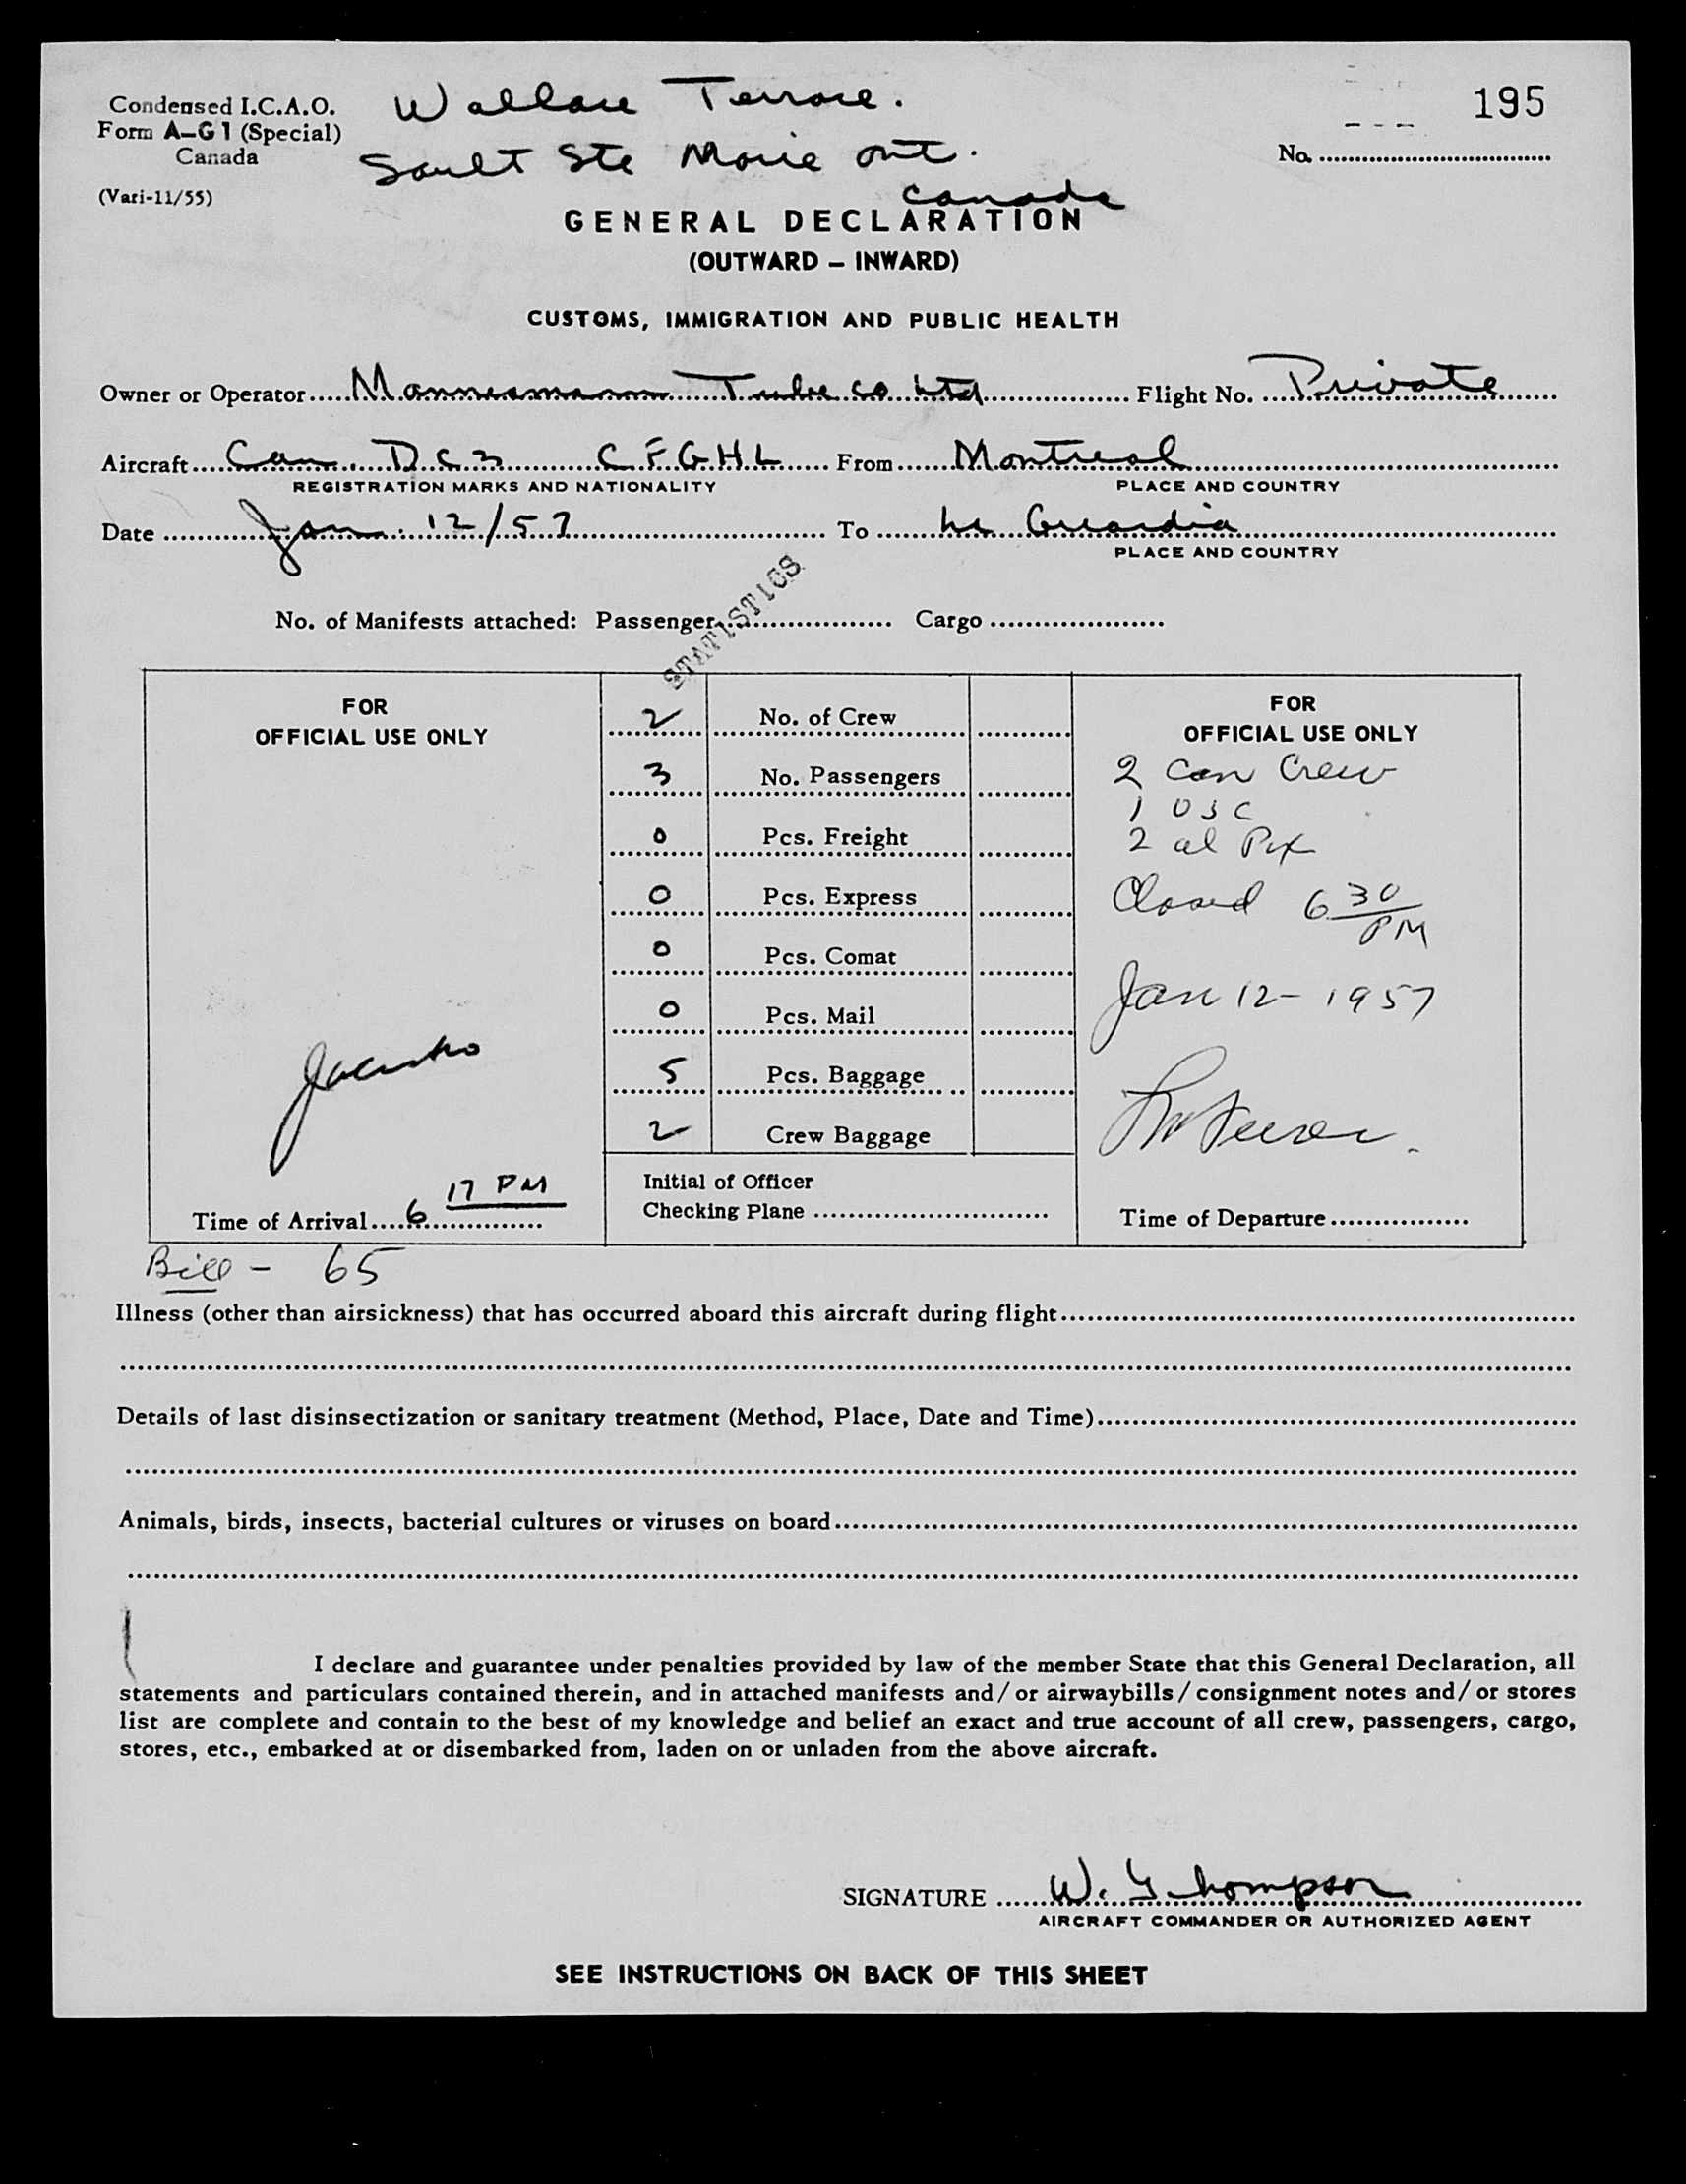 Condensed I.C.A.O.
Form A-G1 (Special)
Canada
(Vari-11/55)
Wallace Terrace.
Sault Ste Marie Ont.
Canada
195
No. ................................
GENERAL DECLARATION
(OUTWARD – INWARD)
CUSTOMS, IMMIGRATION AND PUBLIC HEALTH
Owner or Operator Mannesmann Tube Co Ltd Flight No. Private
Aircraft Can. DC3 C F G H L From Montreal
REGISTRATION MARKS AND NATIONALITY PLACE AND COUNTRY
Date Jan. 12/57 To La Guardia
PLACE AND COUNTRY
STATISTICS
No. of Manifests attached: Passenger ................. Cargo .....................
FOR
OFFICIAL USE ONLY
Time of Arrival 6 17 PM
2 No. of Crew
3 No. Passengers
0 Pcs. Freight
0 Pcs. Express
0 Pcs. Comat
0 Pcs. Mail
5 Pcs. Baggage
2 Crew Baggage
Initial of Officer
Checking Plane ............................
FOR
OFFICIAL USE ONLY
2 Can Crew
1 USC
2 al
Closed 6 30 PM
Jan 12 - 1957
Time of Departure .................
Bill - 65
Illness (other than airsickness) that has occurred aboard this aircraft during flight
Details of last disinsectization or sanitary treatment (Method, Place, Date and Time)
Animals, birds, insects, bacterial cultures or viruses on board
I declare and guarantee under penalties provided by law of the member State that this General Declaration, all
statements and particulars contained therein, and in attached manifests and/or airwaybills/consignment notes and/or stores
list are complete and contain to the best of my knowledge and belief an exact and true account of all crew, passengers, cargo,
stores, etc., embarked at or disembarked from, laden on or unladen from the above aircraft.
SIGNATURE W. Thompson
AIRCRAFT COMMANDER OR AUTHORIZED AGENT
SEE INSTRUCTIONS ON BACK OF THIS SHEET